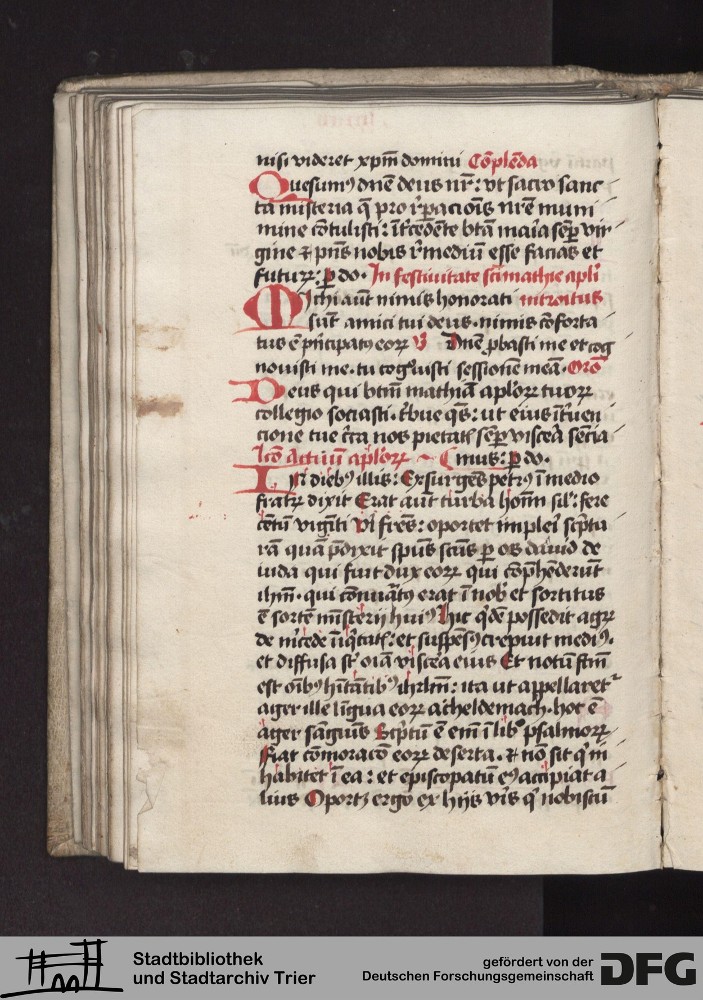 nisi videret xp̄m domini Cōplēda
Quesumꝰ dn̄e deus nr̄: vt sacro sanc
ta misteria q̄ pro rͥpacioīs nr̄e muni
mine cōtulisti: īt͛cedēte btā maīa sēp vir
gine ⁊ pn̄s nobis rͥmediū esse facias et
futurꝝ: ꝑ do. In festiuitate sc̄i mathie apl̄i
Michi aūt nimis honorati introitus
sūt amici tui deus. nimis cōforta
tus ē pͥncipatꝰ eoꝝ V Dn̄e ꝓbasti me et cog
nouisti me. tu cogͦuisti sessionē meā. Orō
Deus qui btm̄ mathiā apl̓oꝝ tuoꝝ
collegio sociasti. tͥbue qs̄: ut eius īt͛uen
cione tue cͥca nos pietatꝭ sēp viscēa sēcia
lcō actuū apl̓oꝝ mus: ꝑ do.
In diebꝰ illis: Exsurgēs petrꝰ ī medio
fratꝝ dixit Erat aūt turba hoīm sil̓: fere
cētū vigīti Vͥ fr̄es: oportet impleͥ sc̄ptu
rā quā p̄dixit spūs sc̄us ꝑ os dauid de
iuda qui fuit dux eoꝝ qui cōp̄hēderūt
ihm̄. qui cōnūatꝰ erat ī nobͥ et sortitus
ē sortē mīsterij huiꝰ Hic qͥdē possedit agꝝ
de m͛cede īiqͥtatꝭ: et suspēsꝰ crepuit mediꝰ.
et diffusa st̄ oīa viscēa eius Et notū fcm̄
est oībꝰ hītātibꝰ ihrl̄m: ita ut appellaretᷣ
ager ille līgua eoꝝ acheldemach. hoc ē
ager sāguīs Sc̄ptū ē em̄ ī libͦ psalmoꝝ
Fiat cōmoracō eoꝝ deserta. ⁊ nō sit qͥ in
habitet ī ea: et episcopatū eꝰ accipiat a
lius Oportꝫ ergo ex hijs viͥs qͥ nobiscū
Stadtbibliothek
und Stadtarchiv Trier
gefördert von der
Deutschen Forschungsgemeinschaft
DFG